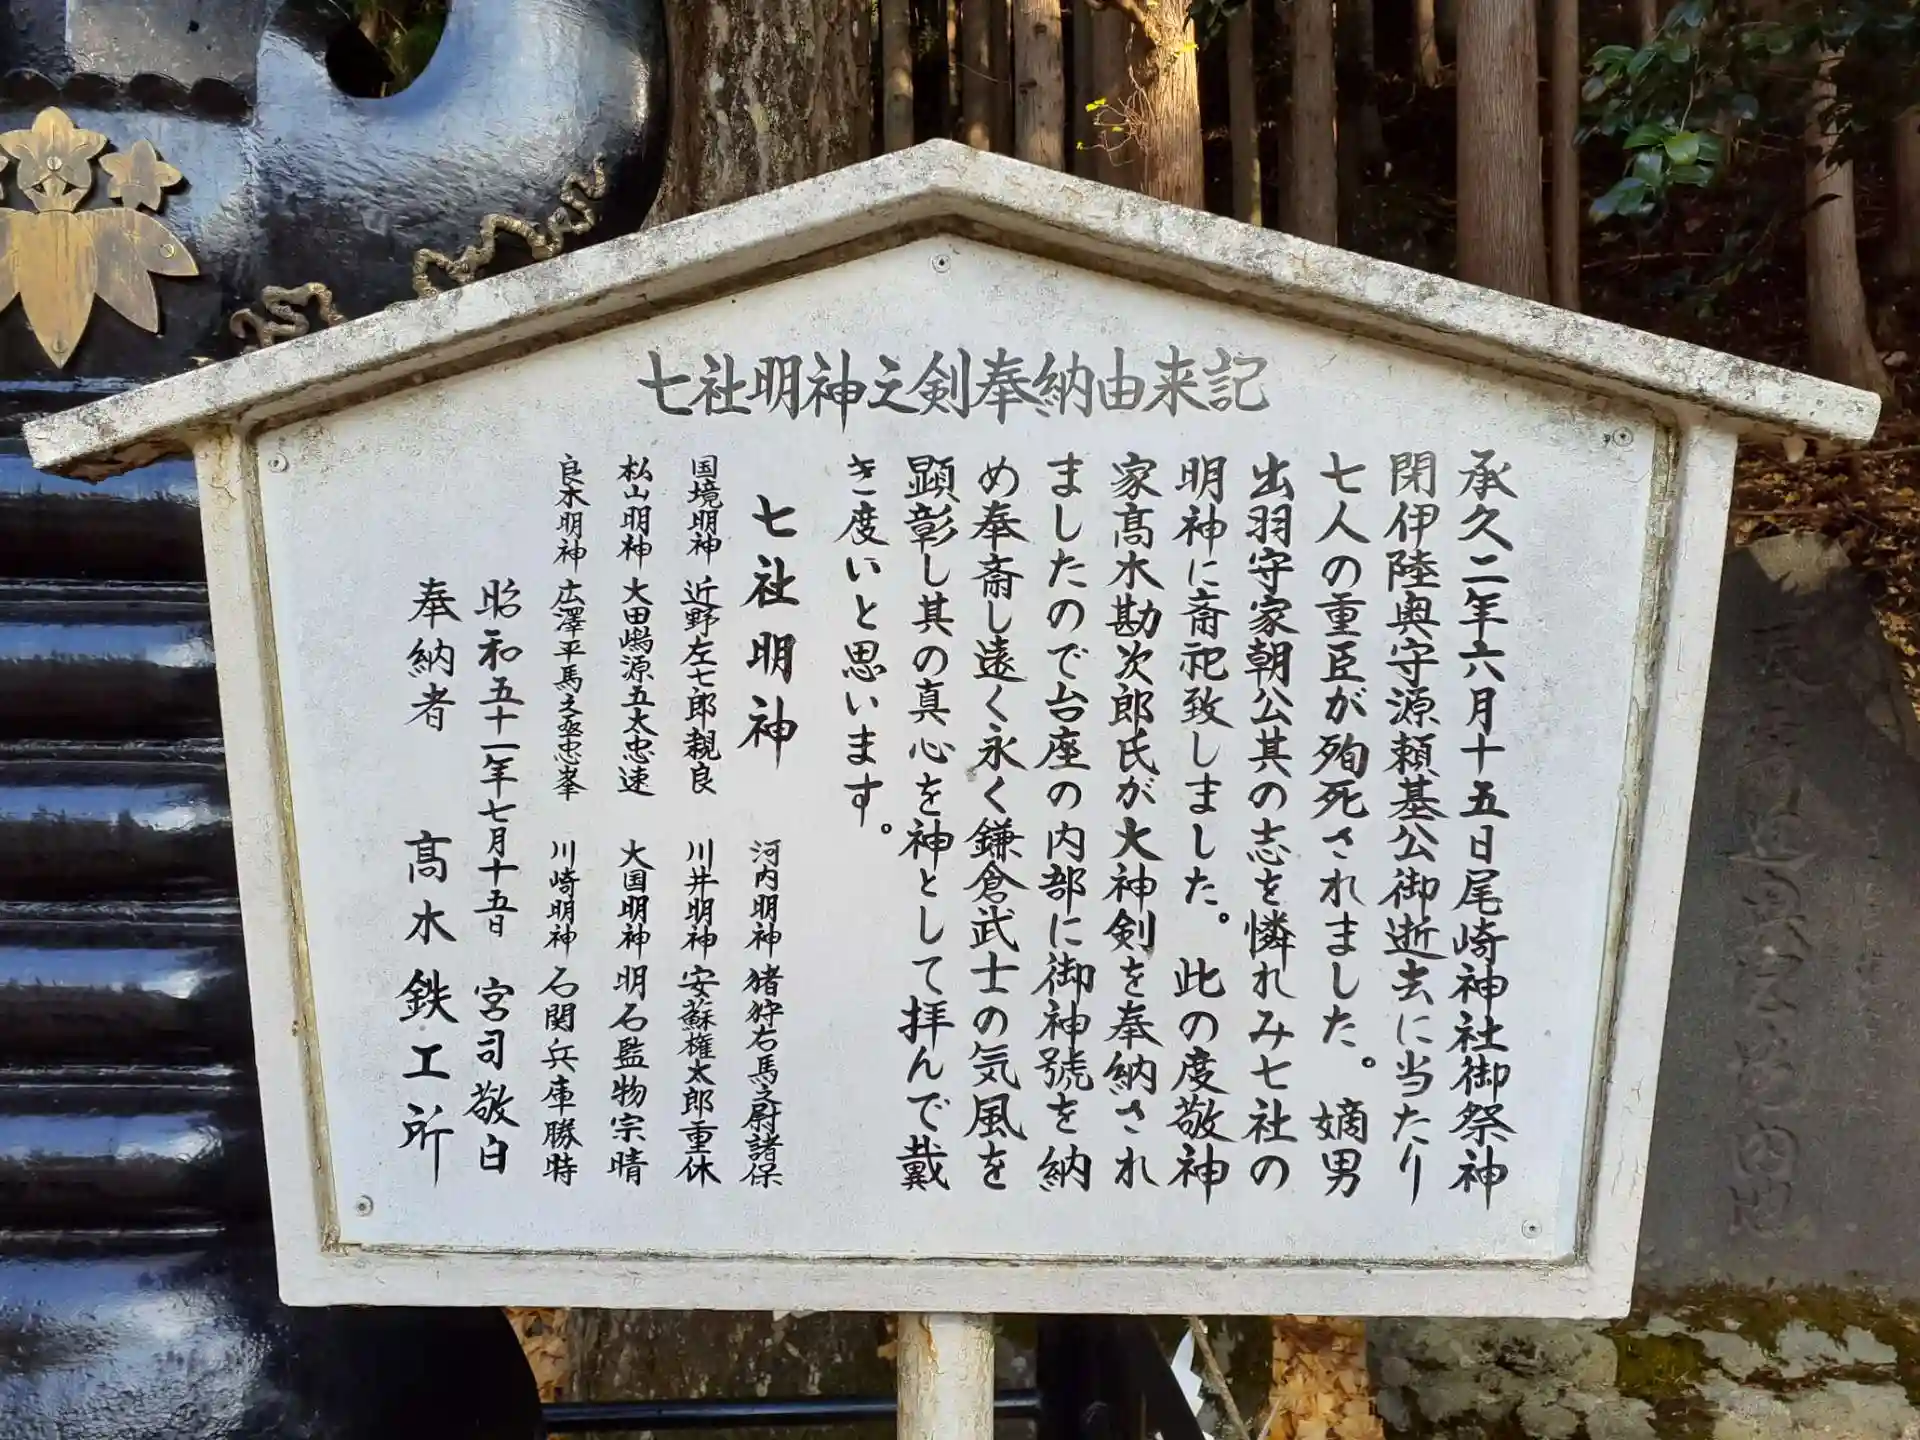 七社明神之剣奉納由来記
承久二年六月十五日尾崎神社御祭神
閉伊陸奥守源頼基公御逝去に当たり
七人の重臣が殉死されました。嫡男
出羽守家朝公其の志を憐れみ七社の
明神に斎祀致しました。此の度敬神
家髙木勘次郎氏が大神剣を奉納され
ましたので台座の内部に御神號を納
め奉斎し遠く永く鎌倉武士の気風を
顕彰し其の真心を神として拝んで戴
き度いと思います。
七社明神
河内明神 猪狩右馬之尉諸保
国境明神 近野左七郎親良
川井明神 安蘇権太郎重休
松山明神 大田嶋源五太忠速
大国明神 明石監物宗晴
良木明神 広澤平馬之亟忠峯
川崎明神 石関兵庫勝時
昭和五十一年七月十五日 宮司敬白
奉納者 髙水鉄工所